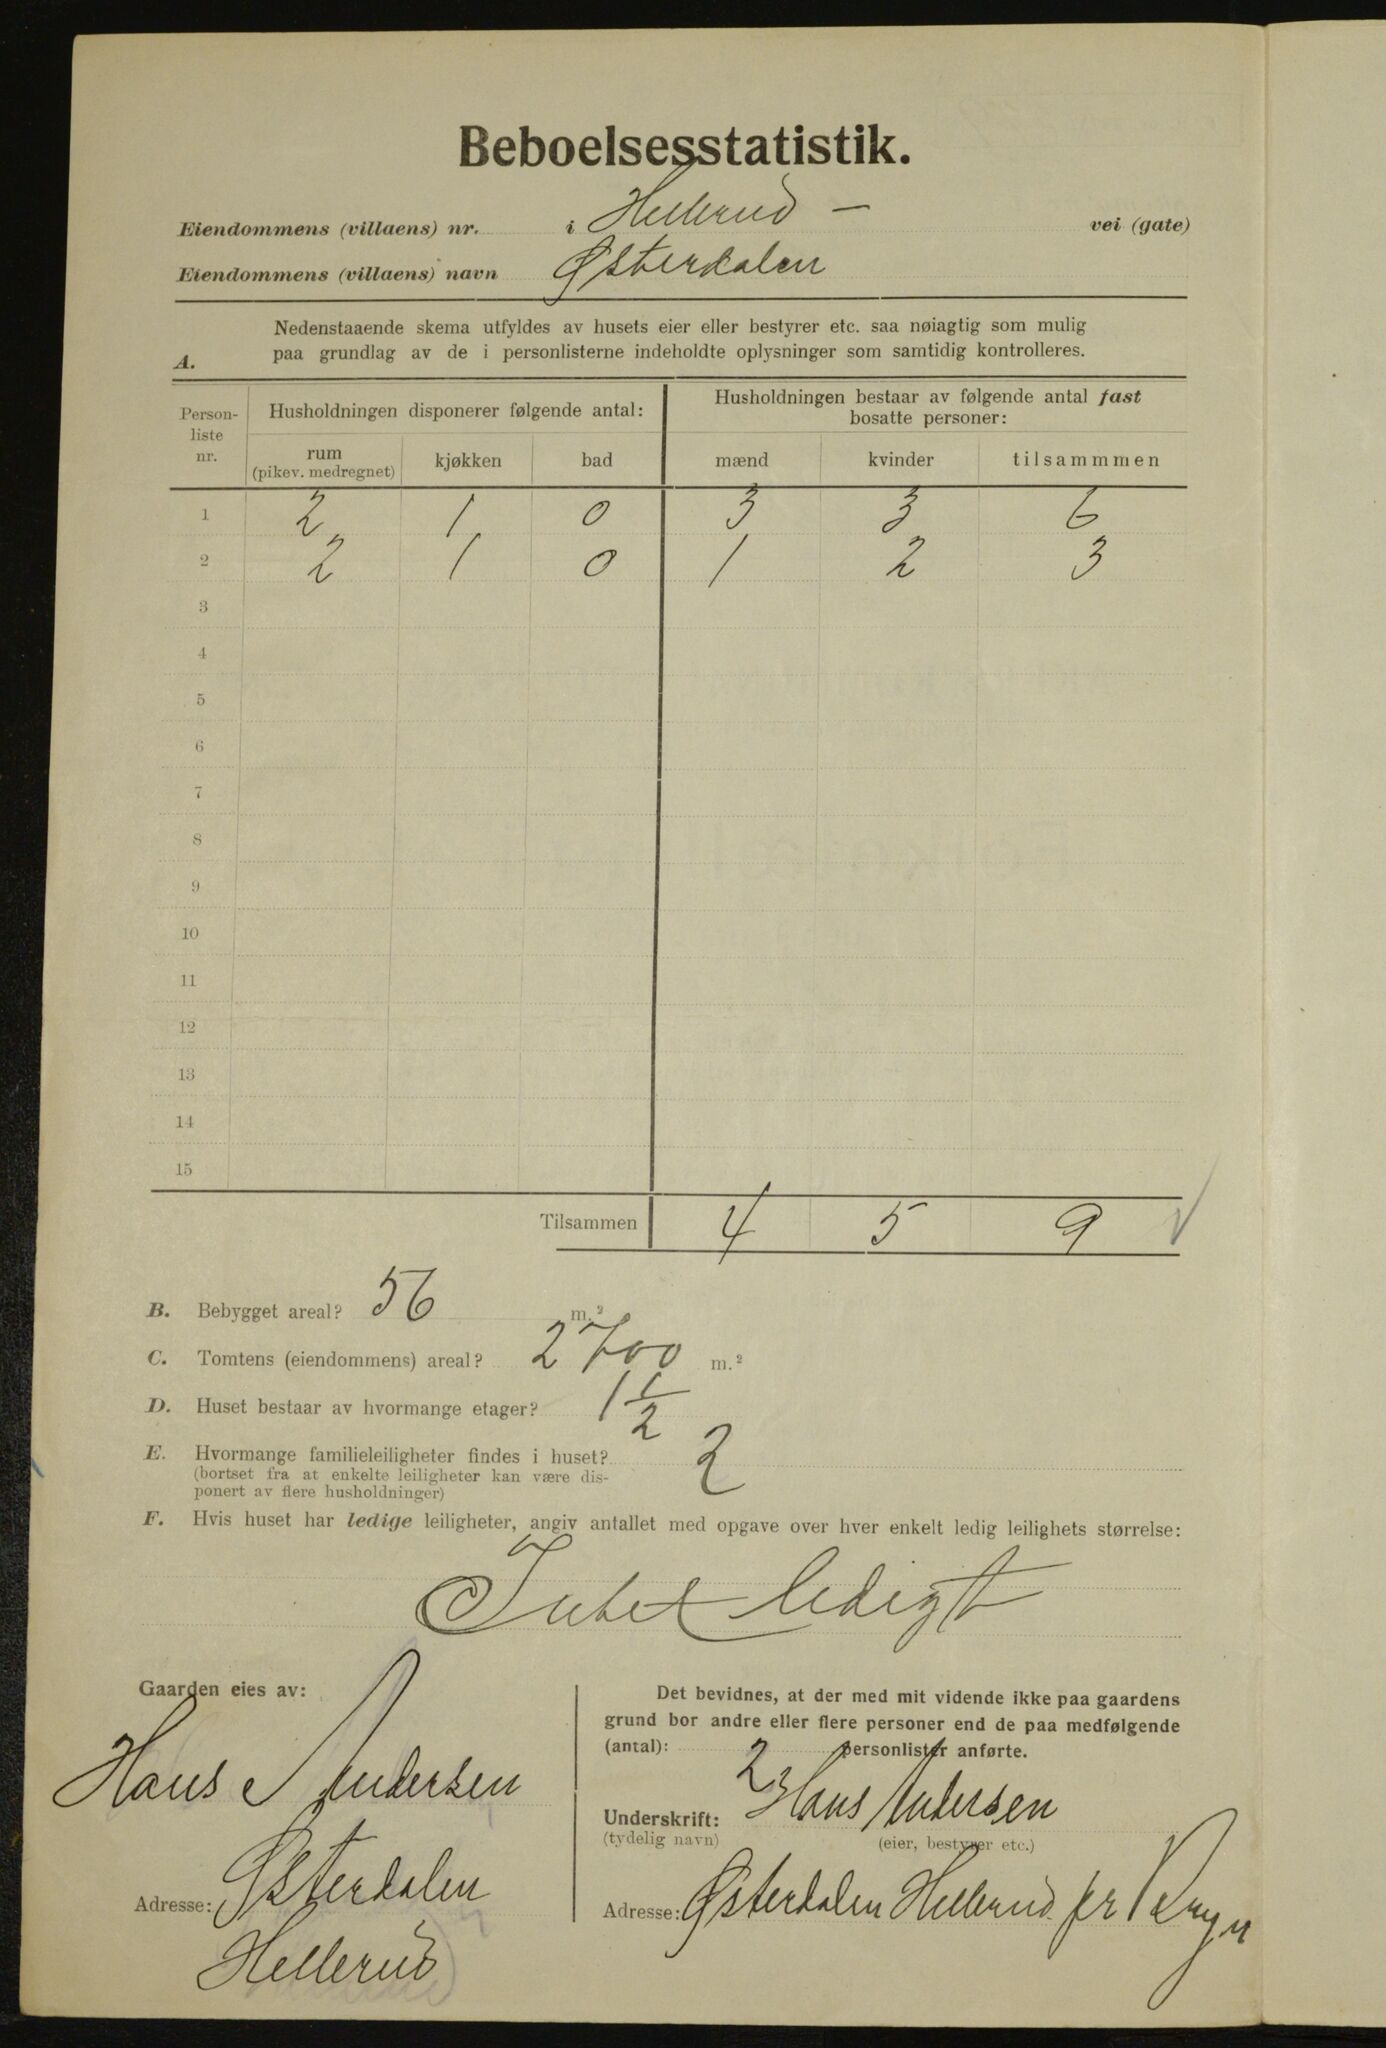 Beboelsesstatistik.
Eiendommens (villaens) nr. i Hellerud — vei (gate)
Eiendommens (villaens) navn Østerdalen
A. Nedenstaaende skema utfyldes av husets eier eller bestyrer etc. saa nøiagtig som mulig
paa grundlag av de i personlisterne indeholdte oplysninger som samtidig kontrolleres.
Person-
liste
nr.
Husholdningen disponerer følgende antal:
Husholdningen bestaar av følgende antal fast
bosatte personer:
rum
(pikev. medregnet)
kjøkken bad mænd kvinder tilsammmen
1 2 1 0 3 3 6
2 2 1 0 1 2 3
3
4
5
6
7
8
9
10
11
12
13
14
15
Tilsammen 4 5 9
B. Bebygget areal? 56 m.²
C. Tomtens (eiendommens) areal? 2700 m.²
D. Huset bestaar av hvormange etager? 1 1/2
E. Hvormange familieleiligheter findes i huset? 2
(bortset fra at enkelte leiligheter kan være dis-
ponert av flere husholdninger)
F. Hvis huset har ledige leiligheter, angiv antallet med opgave over hver enkelt ledig leilighets størrelse:
Intet ledigt
Gaarden eies av:
Hans Andersen
Adresse: Østerdalen
Hellerud
Det bevidnes, at der med mit vidende ikke paa gaardens
grund bor andre eller flere personer end de paa medfølgende
(antal): 2 personlister anførte.
Underskrift: Hans Andersen
(tydelig navn) (eier, bestyrer etc.)
Adresse: Østerdalen Hellerud pr Bryn